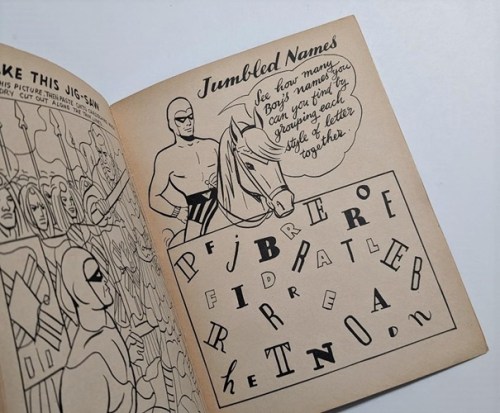 KE THIS JIG-SAW
HIS PICTURE, THEN PASTE ONTO
DRY CUT OUT ALONG THE
Jumbled Names
See how many
Boy's names you
can you find by
grouping each
style of letter
together.
P F j B R E R O E
F I D A A T L E B
R R R E O A D n
h E T N